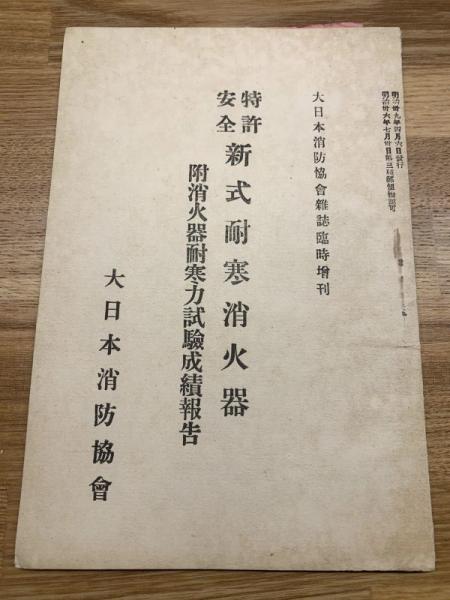 明治卅九年四月六日發行
明治卅六年七月卅日第三種郵便物認可
大日本消防協會雜誌臨時增刊
特許
安全
新式耐寒消火器
附消火器耐寒力試驗成績報告
大日本消防協會